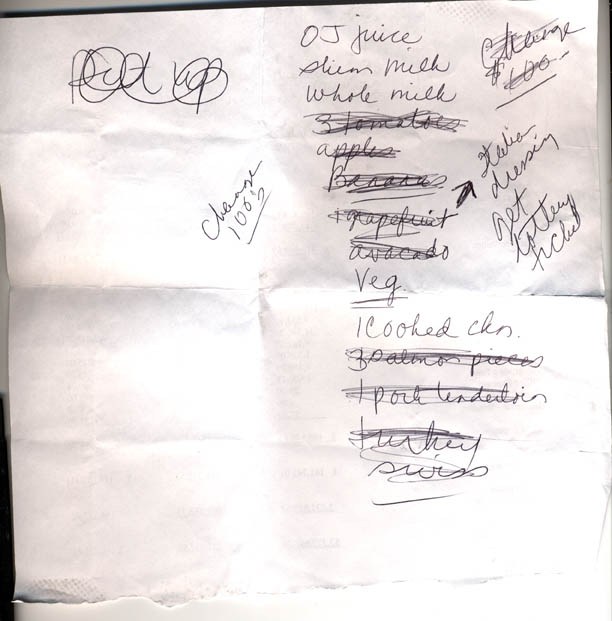 OJ juice
skim milk
whole milk
3 tomatoes
apples
Bananas
1 grapefruit
avacado
Veg
1 Cooked ckn.
3 salmon pieces
1 pork tenderloin
turkey
swiss
change
100's
Change
$100
Italian
dressing
get
lottery
ticket